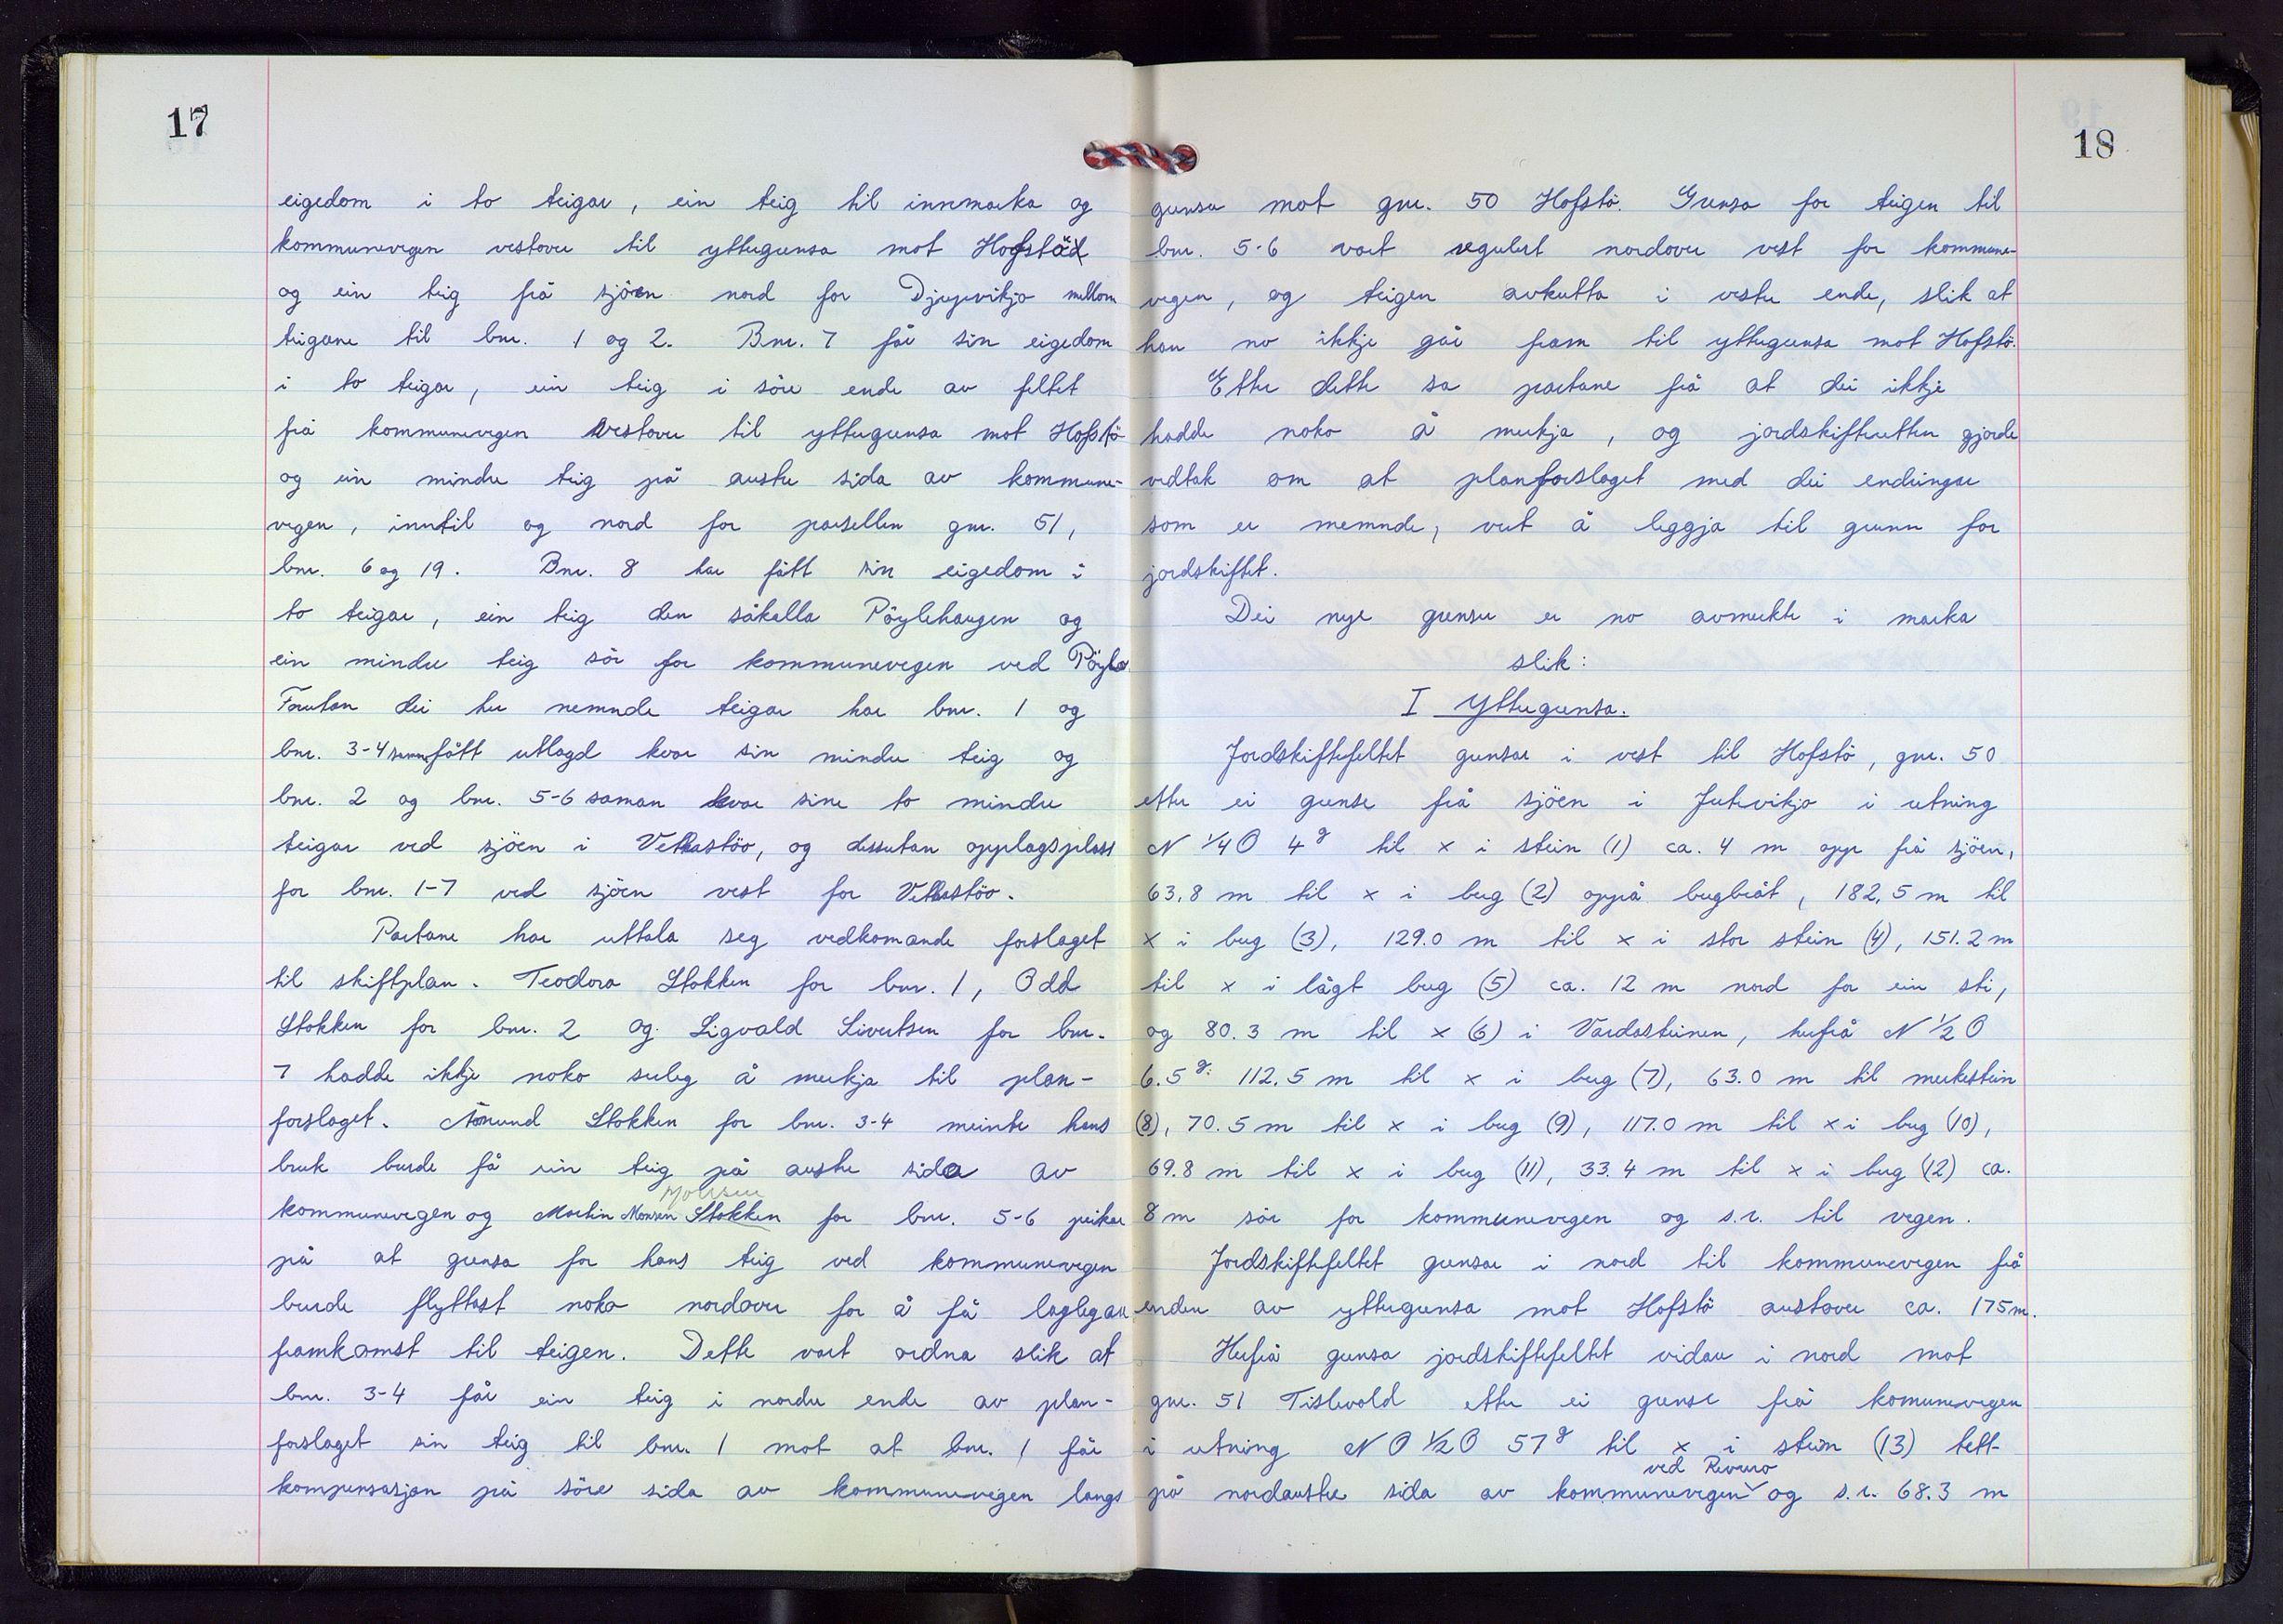 17
eigedom i to teigar, ein teig til innmarka og
kommunevegen vestover til yttergrensa mot Hofstö
og ein teig frå sjöen nord for Djupevikjo mellom
teigane til bnr. 1 og 2. Bnr. 7 får sin eigedom
i to teigar, ein teig i söre ende av feltet
frå kommunevegen vestover til yttergrensa mot Hofstö
og ein mindre teig på austre sida av kommune-
vegen, inntil og nord for parsellen gnr. 51,
bnr. 6 og 19. Bnr. 8 har fått sin eigedom i
to teigar, ein teig den såkalla Pöylehaugen og
ein mindre teig sör for kommunevegen ved Pöyla.
Forutan dei her nemnde teigar har bnr. 1 og
bnr. 3-4 saman fått utlagd kvar sin mindre teig og
bnr. 2 og bnr. 5-6 saman kvar sine to mindre
teigar ved sjöen i Vetrastöo, og dessutan opplagsplass
for bnr. 1-7 ved sjöen vest for Vetrastöo.
Partane har uttala seg vedkomande forslaget
til skiftplan. Teodora Stokken for bnr. 1, Odd
Stokken for bnr. 2 og Sigvald Sivertsen for bnr.
7 hadde ikkje noko serleg å merkja til plan-
forslaget. Åmund Stokken for bnr. 3-4 meinte hans
bruk burde få ein teig på austre sida av
kommunevegen og Martin Monsen Stokken for bnr. 5-6 peikar
på at grensa for hans teig ved kommunevegen
burde flyttast noko nordover for å få laglegare
framkomst til teigen. Dette vart ordna slik at
bnr. 3-4 får ein teig i nordre ende av plan-
forslaget sin teig til bnr. 1 mot at bnr. 1 får
kompensasjon på söre sida av kommunevegen langs
18
grensa mot gnr. 50 Hofstö. Grensa for teigen til
bnr. 5-6 vart regulert nordover vest for kommune-
vegen, og teigen avkutta i vestre ende, slik at
han no ikkje går fram til yttergrensa mot Hofstö.
Etter dette sa partane frå at dei ikkje
hadde noko å merkja, og jordskifteretten gjorde
vedtak om at planforslaget med dei endringar
som er nemnde, vert å leggja til grunn for
jordskiftet.
Dei nye grenser er no avmerkte i marka
slik:
I Yttergrensa.
Jordskiftefeltet grensar i vest til Hofstö, gnr. 50
etter ei grense frå sjöen i Jutevikjo i retning
N 1/4 O 4g til x i stein (1) ca. 4 m opp frå sjöen,
63,8 m til x i berg (2) oppå bergbråt, 182,5 m til
x i berg (3), 129.0 m til x i stor stein (4), 151.2 m
til x i lågt berg (5) ca. 12 m nord for ein sti,
og 80.3 m til x (6) i Vardasteinen, herfrå N 1/2 O
6.5g: 112.5 m til x i berg (7), 63.0 m til merkestein
(8), 70.5 m til x i berg (9), 117.0 m til x i berg (10),
69.8 m til x i berg (11), 33.4 m til x i berg (12) ca.
8 m sör for kommunevegen og s.r. til vegen.
Jordskiftefeltet grensar i nord til kommunevegen frå
enden av yttergrensa mot Hofstö austover ca. 175 m.
Herfrå grensa jordskiftefeltet vidare i nord mot
gnr. 51 Tislevold etter ei grense frå komunevegen
i retning N O 1/2 O 57g til x i stein (13) tett
ved
på nordaustre sida av kommunevegen og s.r. 68.3 m